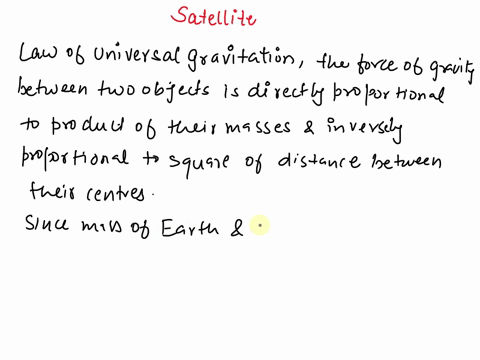 Satellite
Law of universal gravitation, the force of gravity
between two objects is directly proportional
to product of their masses & inversely
proportional to square of distance between
their centres.
Since mass of Earth &